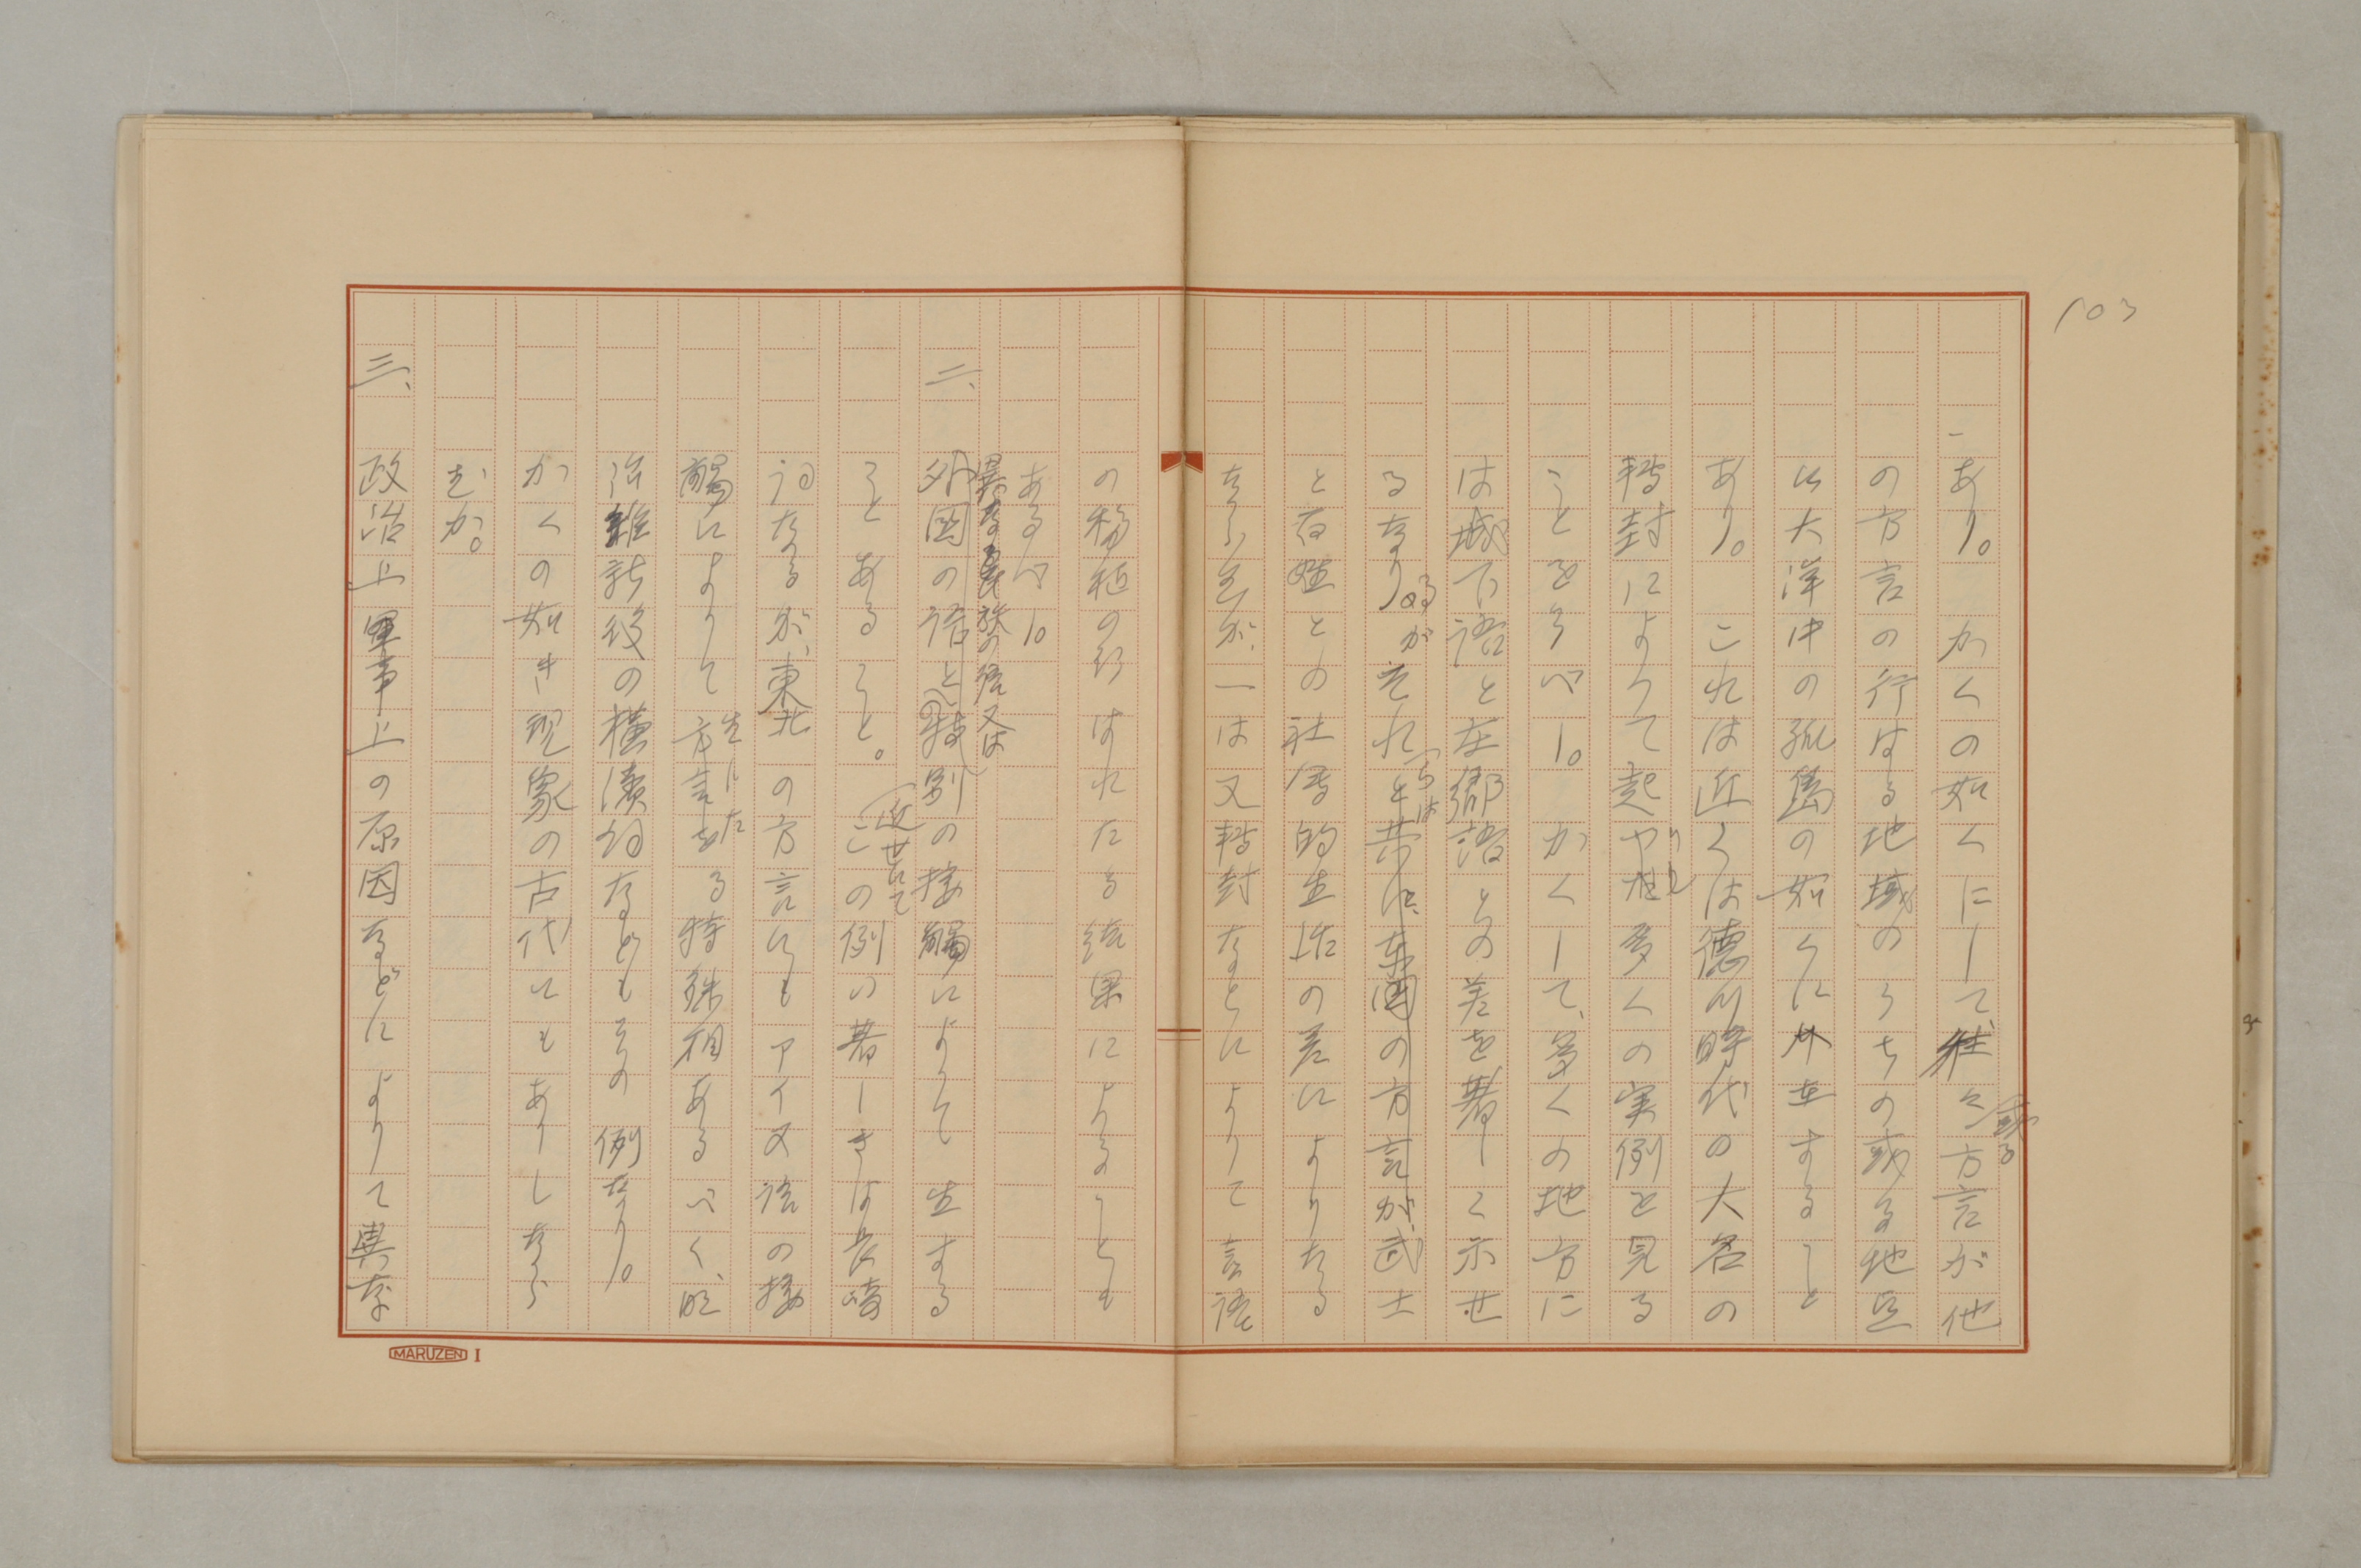 103
あり。かくの如くにして、往々或る方言が他
の方言の行はるる地域のうちの或る地点
に大洋中の孤島の如くに介在すること
あり。これは近くは徳川時代の大名の
転封によりて起りし多くの実例を見る
ことをうべし。かくして、多くの地方に
は城下語と在郷語との差を著しく示せ
るなるが、それらは武士
と百姓との社会的生活の差によりたる
ならむが、一は又転封などによりて言語
の移植の行はれたる結果によることも
あるべし。
二、異なる民族の語又は
外国の語との特別の接触によりて生ずる
ことあること。この例の近世にて著しきは長崎
詞なるが、東北の方言にもアイヌ語の接
触によりて生じたる特殊相あるべく、明
治維新後の横浜詞などもその例なり。
かくの如き現象の古代にもありしなら
むか。
三、政治上軍事上の原因などによりて異な
MARUZEN I